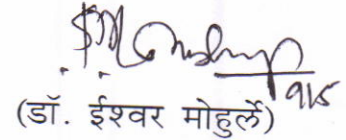 9/5
(डॉ. ईश्वर मोहुर्ले)